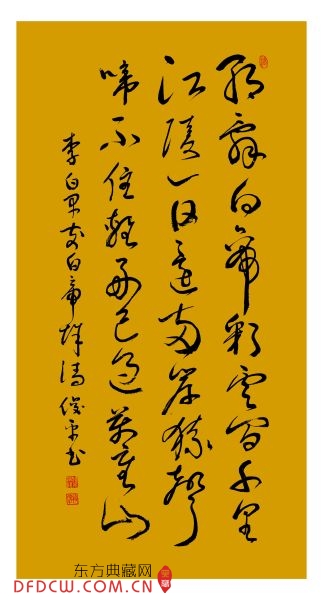 朝辞白帝彩云间千里
江陵一日还两岸猿声
啼不住轻舟已过万重山
李白早发白帝城 俊平书
东方典藏网
DFDCW.COM.CN